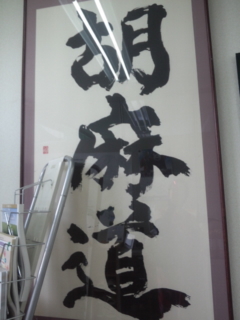 胡麻道